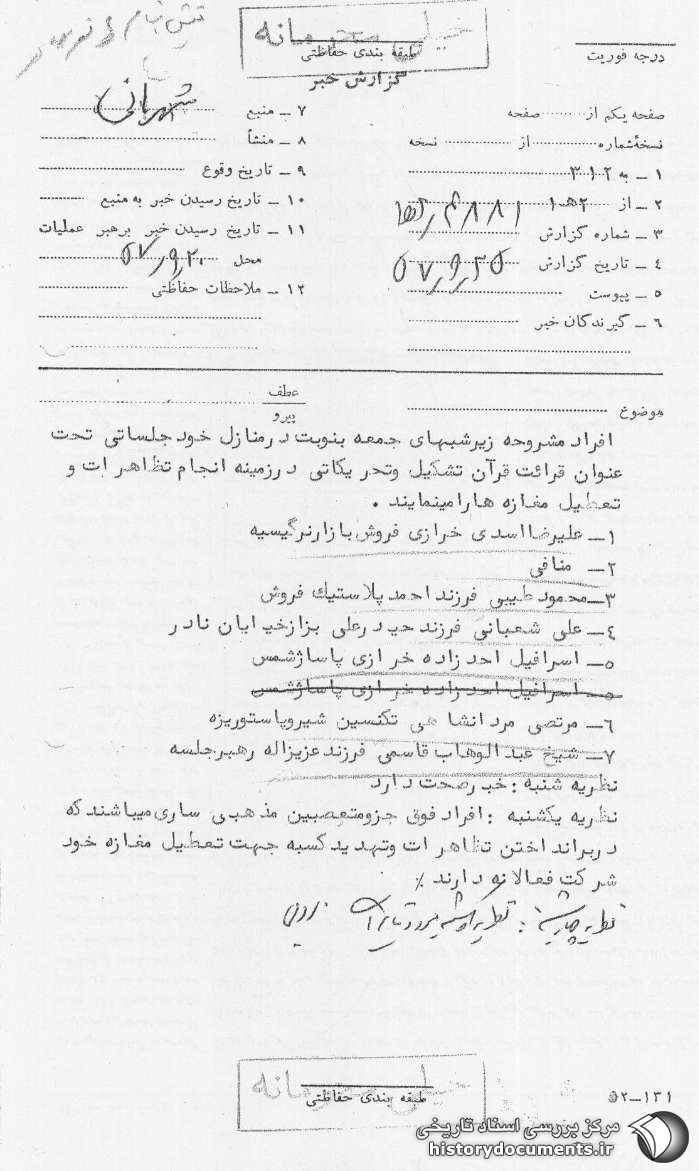 خیلی محرمانه
طبقه بندی حفاظتی
درجه فوریت
گزارش خبر
صفحه یکم از ........ صفحه
نسخهٔ شماره ........ از ........ نسخه
۱ ــ به ۳۱۲
۲ ــ از ۱ه۲
۳ ــ شماره گزارش
۴ ــ تاریخ گزارش ۵۷٫۹٫۲۵
۵ ــ پیوست
۶ ــ گیرندگان خبر
۷ ــ منبع شهربانی
۸ ــ منشأ
۹ ــ تاریخ وقوع
۱۰ ــ تاریخ رسیدن خبر به منبع
۱۱ ــ تاریخ رسیدن خبر برهبر عملیات
محل ۵۷٫۹٫۲۰
۱۲ ــ ملاحظات حفاظتی
موضوع
عطف
پیرو
افراد مشروحه زیرشبهای جمعه بنوبت درمنازل خود جلساتی تحت
عنوان قرائت قرآن تشکیل وتحریکاتی درزمینه انجام تظاهرات و
تعطیل مغازه هارامینمایند .
۱ــ علیرضا اسدی خرازی فروش بازارنرگیسیه
۲ــ منافی
۳ــ محمود طیبی فرزند احمد پلاستیك فروش
۴ــ علی شعبانی فرزند حیدرعلی بزازخیابان نادر
۵ــ اسرافیل احدزاده خرازی پاساژشمس
۵ــ اسرافیل احدزاده خرازی پاساژشمس
۶ــ مرتصی مردانشاهی تکنسین شیروپاستوریزه
۷ــ شیخ عبدالوهاب قاسمی فرزند عزیزاله رهبرجلسه
نظریه شنبه : خبرصحت دارد
نظریه یکشنبه : افراد فوق جزومتعصبین مذهبی ساری میباشند که
دربراند اختن تظاهرات وتهدید کسبه جهت تعطیل مغازه خود
شرکت فعالانه دارند ٪
نظریه چهارشنبه :
خیلی محرمانه
طبقه بندی حفاظتی
۵۲ــ۱۳۱
مرکز بررسی اسناد تاریخی
historydocuments.ir